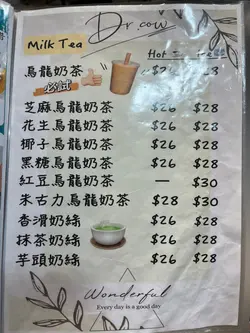 Dr.cow
Milk Tea
Hot
烏龍奶茶
必試
芝麻烏龍奶茶 $26 $28
花生烏龍奶茶 $26 $28
椰子烏龍奶茶 $26 $28
黑糖烏龍奶茶 $26 $28
紅豆烏龍奶茶 — $30
朱古力烏龍奶茶 $28 $30
香滑奶綠 $26 $28
抹茶奶綠 $26 $28
芋頭奶綠 $26 $28
Wonderful
Every day is a good day